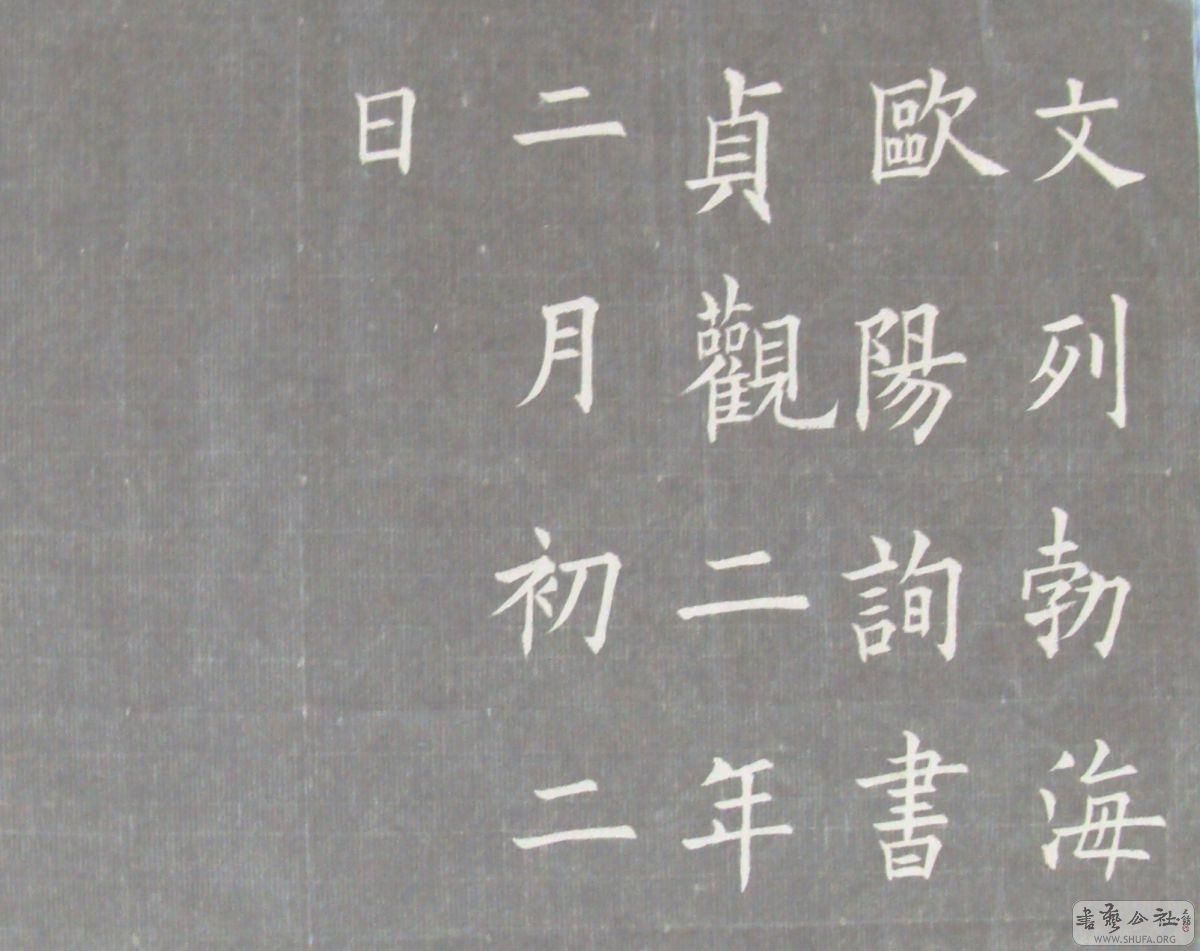 文列勃海
歐陽詢書
貞觀二年
二月初二
日
書藝公社
WWW.SHUFA.ORG